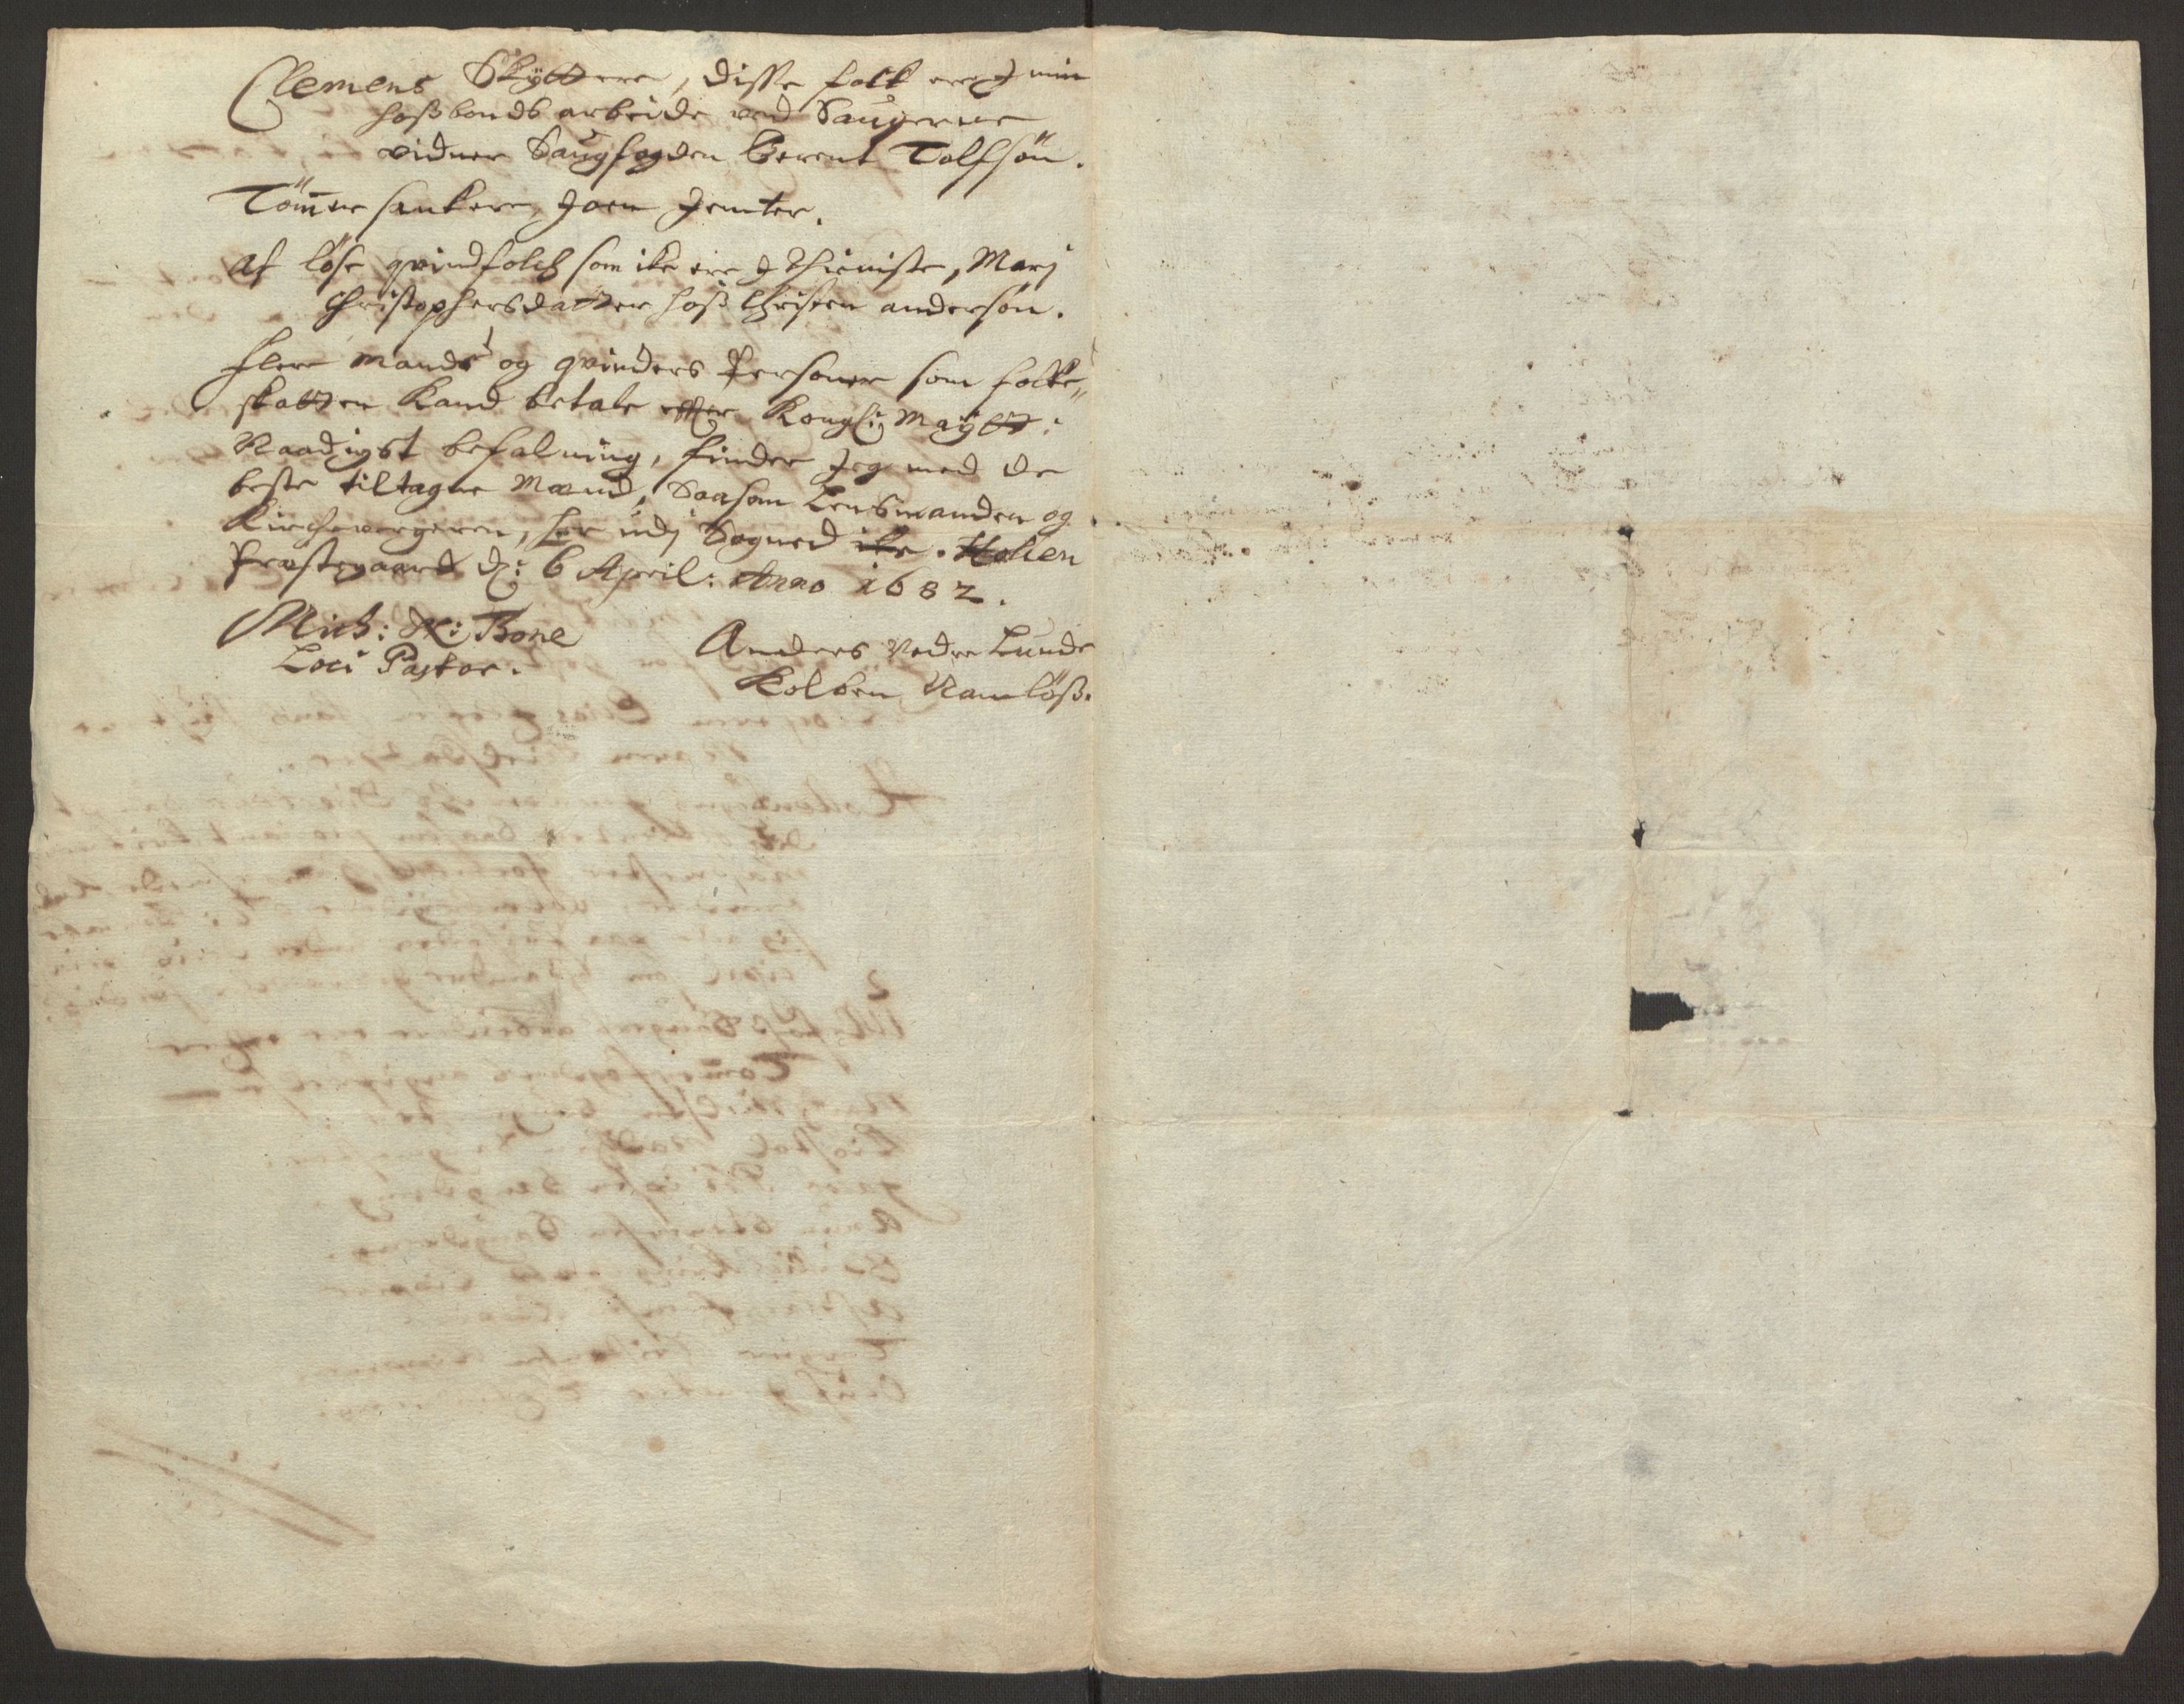 Clemens Skÿttere, disse folk ere J min
hoßbonds arbeide ved Saugerne
vidner Saugfogden Berent Tolfsön.
Töm̅er sankere, Joen Jemter.
Af löse qvindfolch som ike ere J thieniste, Marj
Christophersdatter hoß Christen andersön.
Flere mands og qvinders Personer som folke„
skatten Kand betale effter Kongl: Maÿtt:
Naadigst befalning, finder Jeg med de
beste tiltagne Mænd, Saasom Lensmanden og
Kirchewergeren, her udj Sogned ike. Hollen
Præstegaard d: 6 April: Anno 1682.
Mich: Bone
Loci Pastor.
Anders Nedre Lunde
Kolben Namlöß.